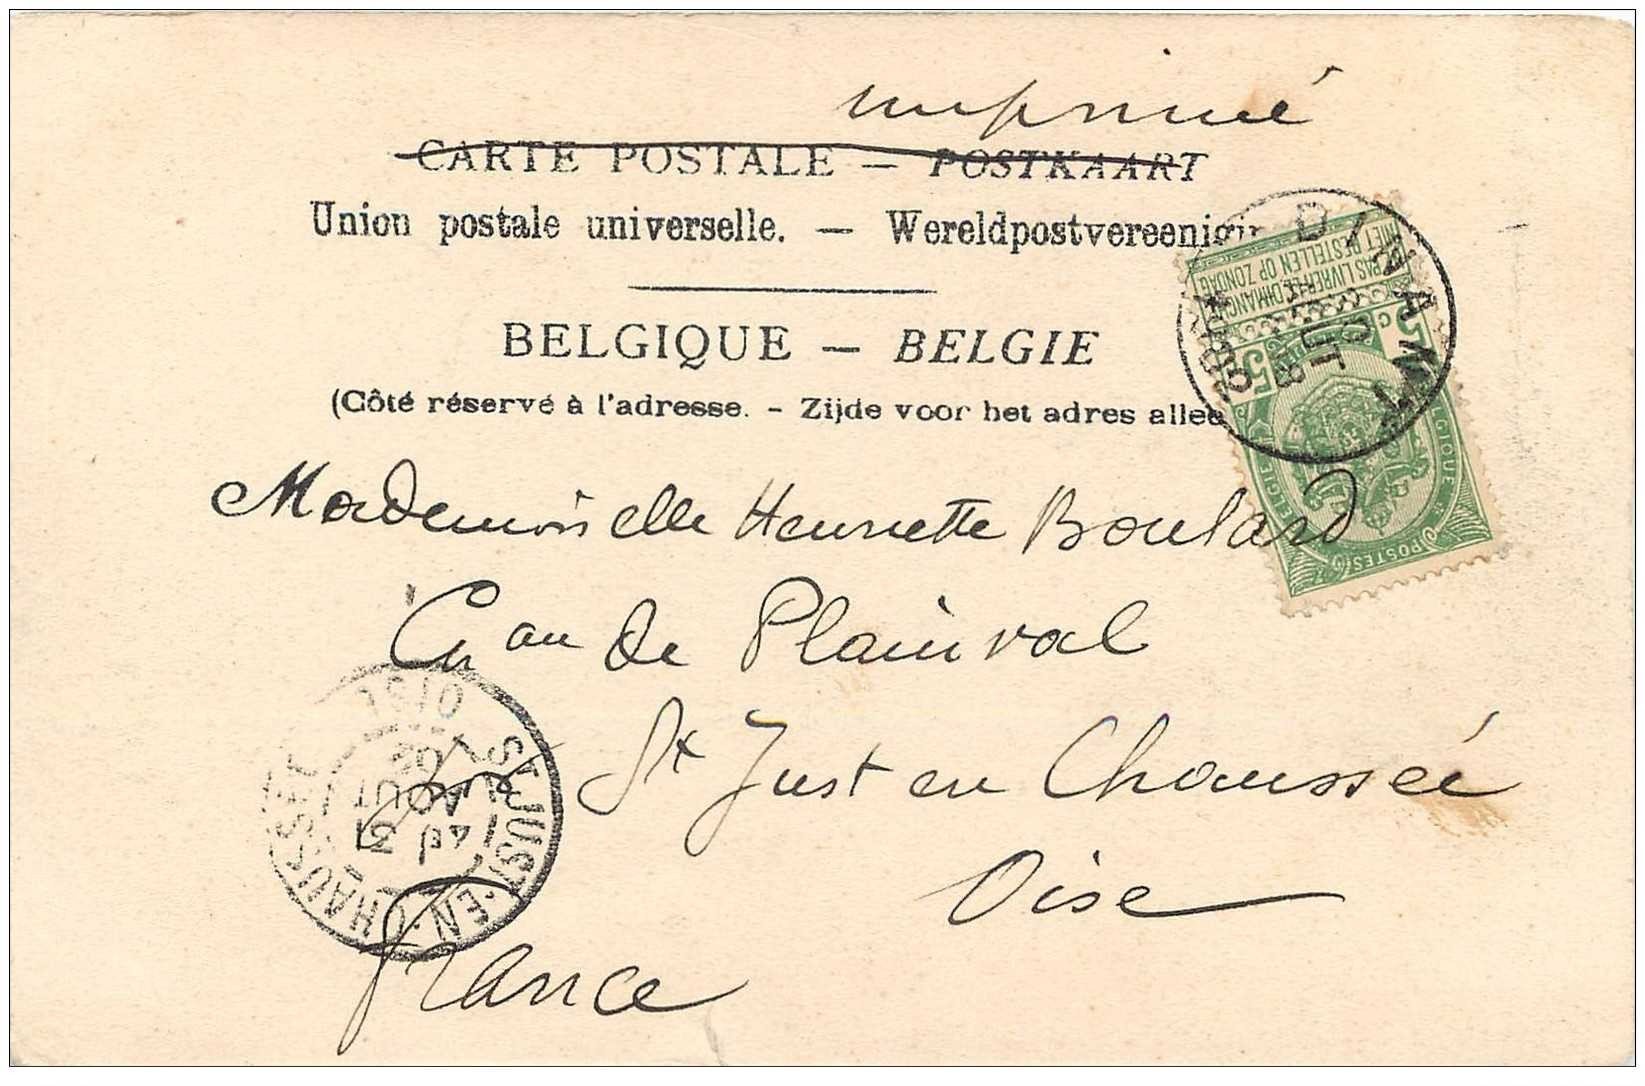 imprimé
CARTE POSTALE — POSTKAART
Union postale universelle. — Wereldpostvereenigin
BELGIQUE — BELGIE
(Côté réservé à l'adresse. - Zijde voor het adres allee
DINANT
AOUT
18
NE PAS LIVRER LE DIMANCHE
NIET BESTELLEN OP ZONDAG
5 C 5
BELGIE BELGIQUE
POSTES
Mademoiselle Henriette Boulard
Ch au de Plainval
St Just en Chaussée
Oise
France
ST JUST-EN-CHAUSSÉE
OISE
AOUT